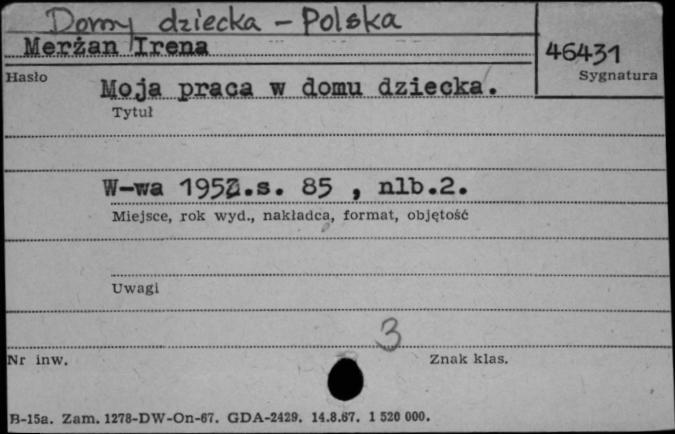 Domy dziecka - Polska
Merżan Irena
46431
Hasło
Sygnatura
Moja praca w domu dziecka.
Tytuł
W-wa 1952.s. 85 , nlb.2.
Miejsce, rok wyd., nakładca, format, objętość
Uwagi
3
Nr inw.
Znak klas.
B-15a. Zam. 1278-DW-On-67. GDA-2429. 14.8.67. 1 520 000.